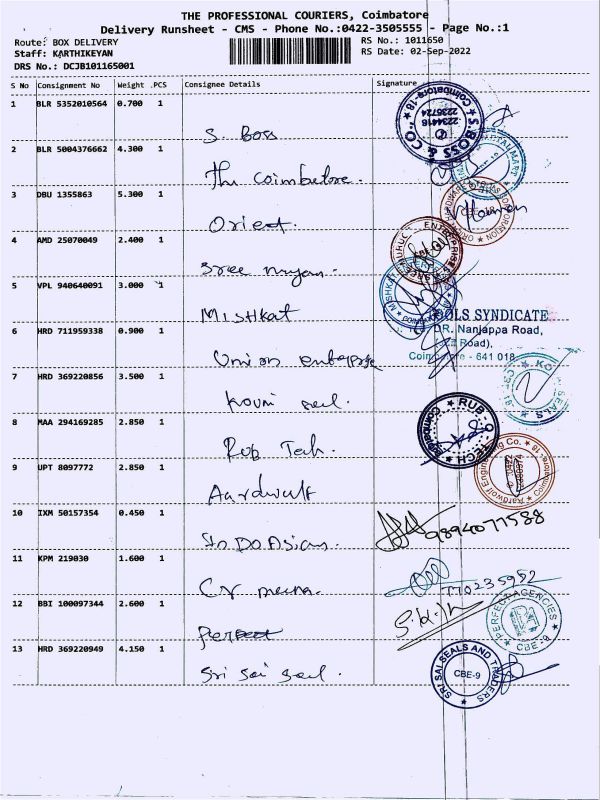 THE PROFESSIONAL COURIERS, Coimbatore
Delivery Runsheet - CMS - Phone No.:0422-3505555 - Page No.:1
Route: BOX DELIVERY
RS No.: 1011650
Staff: KARTHIKEYAN
RS Date: 02-Sep-2022
DRS No.: DCJB101165001
S No Consignment No Weight .PCS Consignee Details Signature
1 BLR 5352010564 0.700 1
S. Boss
S BOSS & CO
2234416
2235724
Coimbatore-18
2 BLR 5004376662 4.300 1
The Coimbatore.
3 DBU 1355863 5.300 1
Orient.
4 AMD 25070049 2.400 1
ENTERPRISES
5 VPL 940640091 3.000 1
MIShkat
TOOLS SYNDICATE
DR. Nanjappa Road,
Road),
Coimbatore - 641 018
6 HRD 711959338 0.900 1
Union enterprise
7 HRD 369220856 3.500 1
SEALS
8 MAA 294169285 2.850 1
Rub Tech.
RUB-O-TECH
Coimbatore
9 UPT 8097772 2.850 1
Aardwolf
Aardwolf Engineering Co.
Coimbatore-18
10 IXM 50157354 0.450 1
9894077588
11 KPM 219030 1.600 1
12 BBI 100097344 2.600 1
Perfect
PERFECT AGENCIES
CBE-9
13 HRD 369220949 4.150 1
Sri Sai Seal.
SRI SAI SEALS AND TRADERS
CBE-9